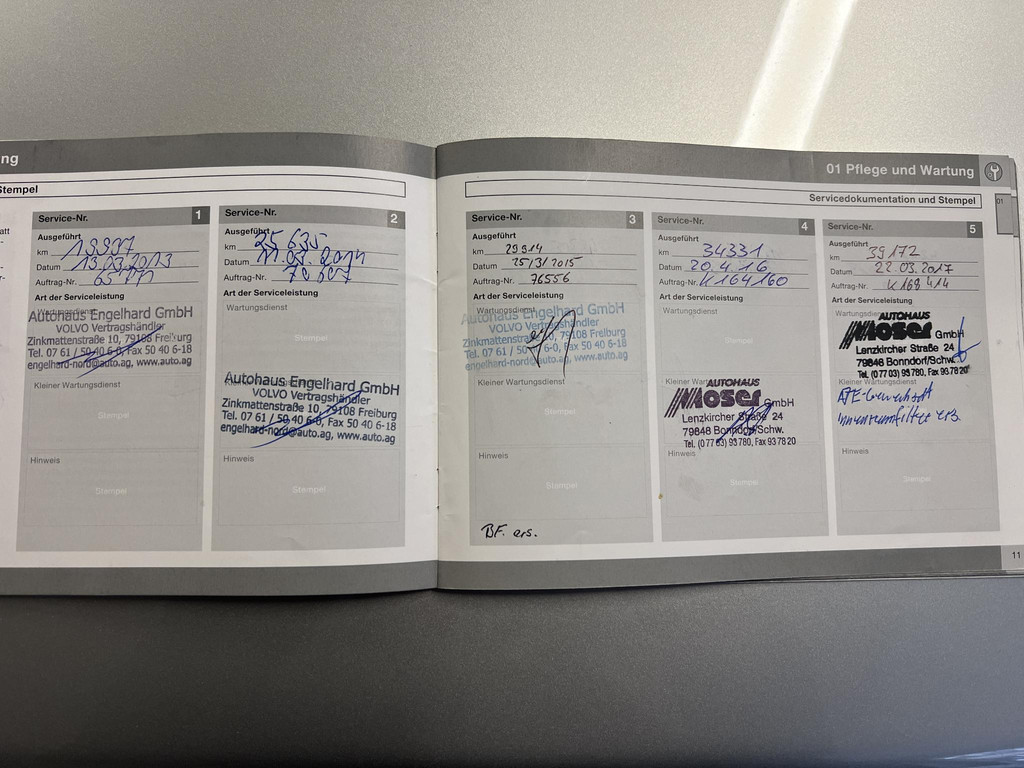 ng
Stempel
Service-Nr. 1
Ausgeführt
km 13997
Datum 13.03.2013
Auftrag-Nr.
Art der Serviceleistung
Wartungsdienst
Autohaus Engelhard GmbH
VOLVO Vertragshändler
Zinkmattenstraße 10, 79108 Freiburg
Tel. 07 61 / 50 40 6-0, Fax 50 40 6-18
engelhard-nord@auto.ag, www.auto.ag
Kleiner Wartungsdienst
Stempel
Hinweis
Stempel
Service-Nr. 2
Ausgeführt
km 25635
Datum 11.03.2014
Auftrag-Nr. 70607
Art der Serviceleistung
Wartungsdienst
Stempel
Autohaus Engelhard GmbH
VOLVO Vertragshändler
Zinkmattenstraße 10, 79108 Freiburg
Tel. 07 61 / 50 40 6-0, Fax 50 40 6-18
engelhard-nord@auto.ag, www.auto.ag
Hinweis
Stempel
01 Pflege und Wartung
Servicedokumentation und Stempel
01
Service-Nr. 3
Ausgeführt
km 29914
Datum 25/3/2015
Auftrag-Nr. 76556
Art der Serviceleistung
Wartungsdienst
Autohaus Engelhard GmbH
VOLVO Vertragshändler
Zinkmattenstraße 10, 79108 Freiburg
Tel. 07 61 / 50 40 6-0, Fax 50 40 6-18
engelhard-nord@auto.ag, www.auto.ag
Kleiner Wartungsdienst
Stempel
Hinweis
Stempel
BF. ers.
Service-Nr. 4
Ausgeführt
km 34331
Datum 20.4.16
Auftrag-Nr. K164160
Art der Serviceleistung
Wartungsdienst
Stempel
Kleiner Wartungsdienst
AUTOHAUS
Moser GmbH
Lenzkircher Straße 24
79848 Bonndorf/Schw.
Tel. (0 77 03) 93 780, Fax 93 78 20
Hinweis
Stempel
Service-Nr. 5
Ausgeführt
km 39172
Datum 22.03.2017
Auftrag-Nr. K169414
Art der Serviceleistung
Wartungsdienst
AUTOHAUS
Moser GmbH
Lenzkircher Straße 24
79848 Bonndorf/Schw.
Tel. (0 77 03) 93 780, Fax 93 78 20
Kleiner Wartungsdienst
Innenraumfilter ers.
Hinweis
Stempel
11